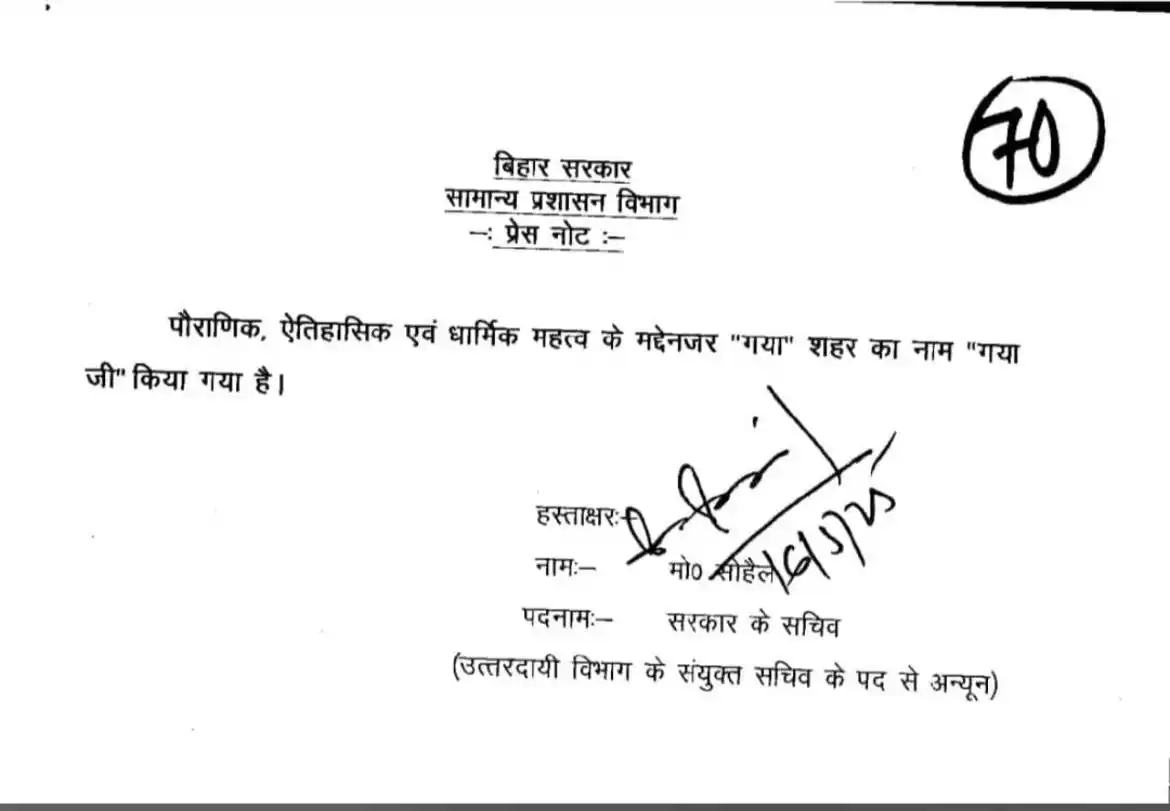 70
बिहार सरकार
सामान्य प्रशासन विभाग
–: प्रेस नोट :–
पौराणिक, ऐतिहासिक एवं धार्मिक महत्व के मद्देनजर "गया" शहर का नाम "गया
जी" किया गया है।
हस्ताक्षरः–
16/5/25
नामः– मो० सोहैल
पदनामः– सरकार के सचिव
(उत्तरदायी विभाग के संयुक्त सचिव के पद से अन्यून)